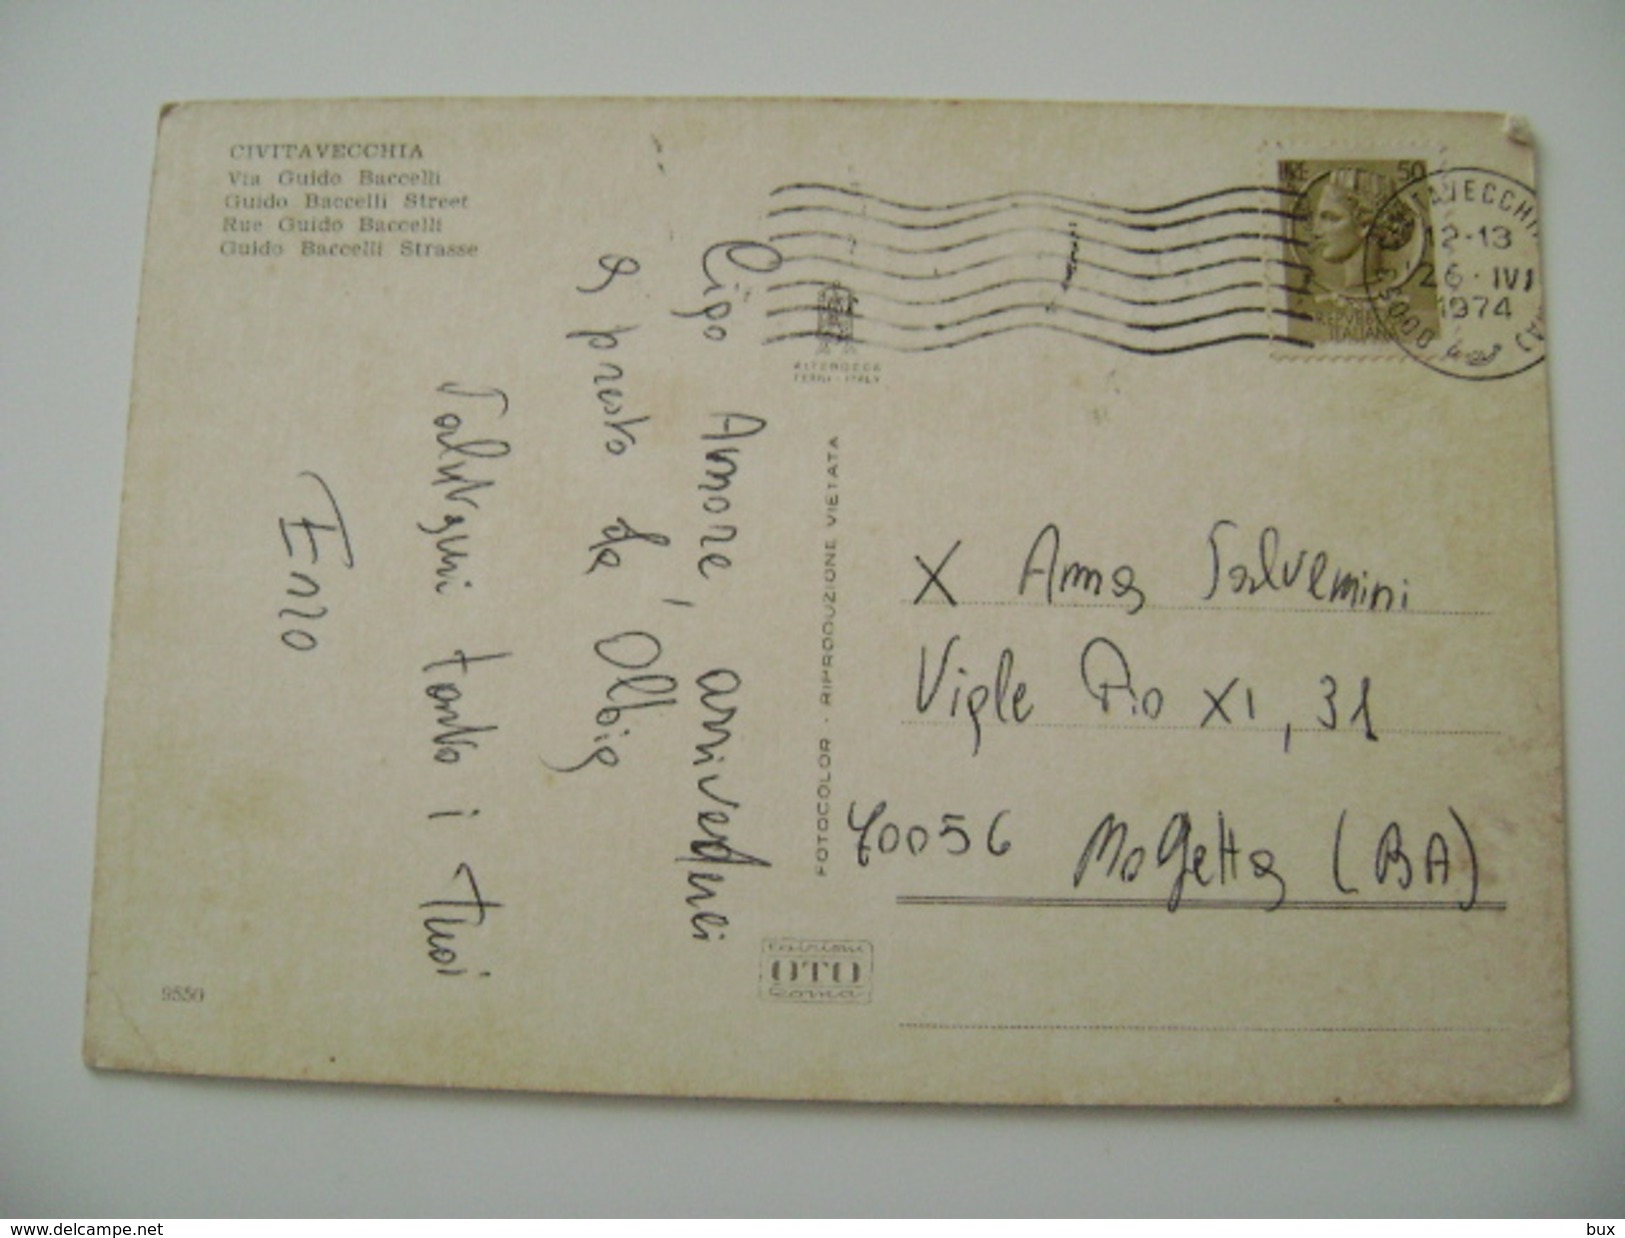 CIVITAVECCHIA
Via Guido Baccelli
Guido Baccelli Street
Rue Guido Baccelli
Guido Baccelli Strasse
Ciao Amore, arrivederci
a presto da Olbia
Salutami tanto i tuoi
Enzo
9550
ALTEROCCA
TERNI - ITALY
FOTOCOLOR - RIPRODUZIONE VIETATA
Edizioni
OTO
Roma
LIRE 50
REPVBBLICA
ITALIANA
12-13
26·IV
1974
00053
X Anna Salvemini
Viale Pio XI, 31
70056 Molfetta (BA)
www.delcampe.net
bux